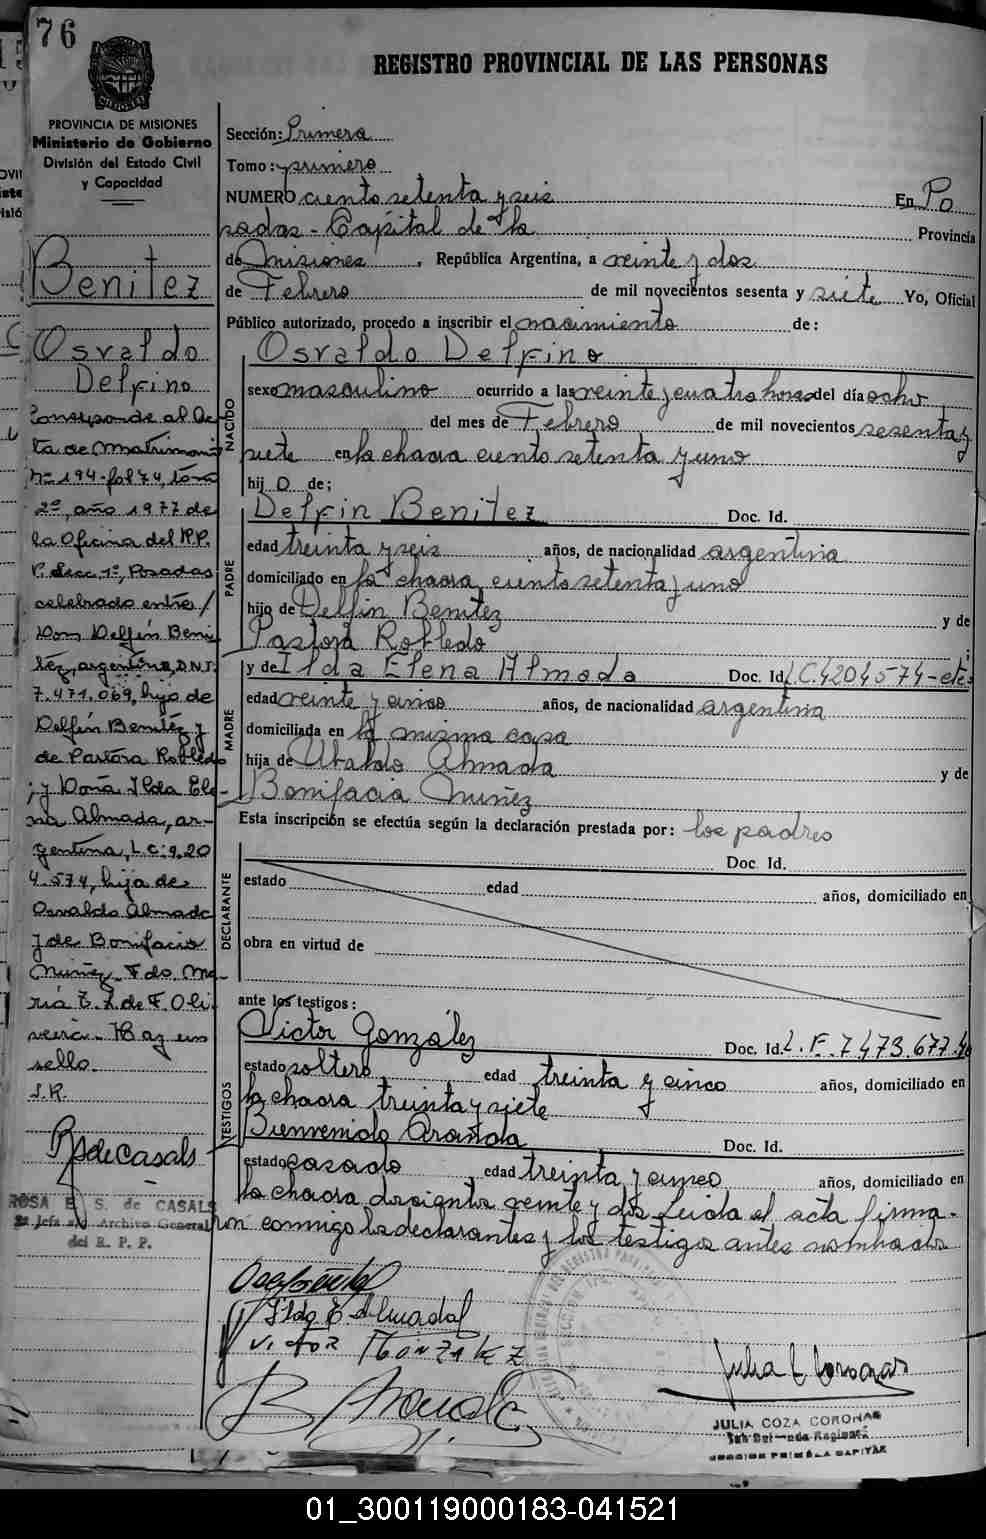 76
REGISTRO PROVINCIAL DE LAS PERSONAS
PROVINCIA DE MISIONES
Ministerio de Gobierno
División del Estado Civil
y Capacidad
Benitez
Osvaldo
Delfino
Corresponde al Ac-
ta de Matrimonio
Nº 194-fol 74, tomo
2º, año 1977 de
la Oficina del R.P.
P. Secc. 1º, Posadas
celebrado entre/
Don Delfín Beni
tez, argentino, D.N.I.
7.471.069, hijo de
Delfín Benítez y
de Pastora Robledo
; y Doña Ilda Ele-
na Almada, ar-
gentina, L.C: 4.20
4.574, hija de
Osvaldo Almada
y de Bonifacia
Nuñez. Fdo. Ma-
ria Z. Z. de F. Oli
veira. Hay un
sello.
S.R.
RSdeCasals
ROSA E. S. de CASALS
Jefa Archivo General
del R. P. P.
Sección: Primera
Tomo: primero
NUMERO ciento setenta y seis En Po
sadas - Capital de la Provincia
de Misiones, República Argentina, a veinte y dos
de Febrero de mil novecientos sesenta y siete Yo, Oficial
Público autorizado, procedo a inscribir el nacimiento de:
NACIDO
Osvaldo Delfino
sexo masculino ocurrido a las veinte y cuatro horas del día ocho
del mes de Febrero de mil novecientos sesenta y
siete en la chacra ciento setenta y uno
hijo de;
PADRE
Delfin Benitez Doc. Id.
edad treinta y seis años, de nacionalidad argentina
domiciliado en la chacra ciento setenta y uno
hijo de Delfin Benitez y de
Pastora Robledo ;
MADRE
y de Ilda Elena Almada Doc. Id. L.C. 4204574-
edad veinte y cinco años, de nacionalidad argentina
domiciliada en la misma casa
hija de Ubaldo Almada y de
Bonifacia Nuñez
Esta inscripción se efectúa según la declaración prestada por: los padres
DECLARANTE
Doc. Id.
estado edad años, domiciliado en
obra en virtud de
ante los testigos:
TESTIGOS
Victor González Doc. Id. L.E. 7.473.677
estado soltero edad treinta y cinco años, domiciliado en
la chacra treinta y siete
Bienvenido Aranda Doc. Id.
estado casado edad treinta y cinco años, domiciliado en
la chacra doscientos veinte y dos Leida el acta firma-
ron conmigo los declarantes y los testigos antes nombrados
Ilda E Almada
VICTOR GONZALEZ
B. Aranda
Julia C Coronas
JULIA COZA CORONAS
SECCION PRIMERA CAPITAL
01_300119000183-041521